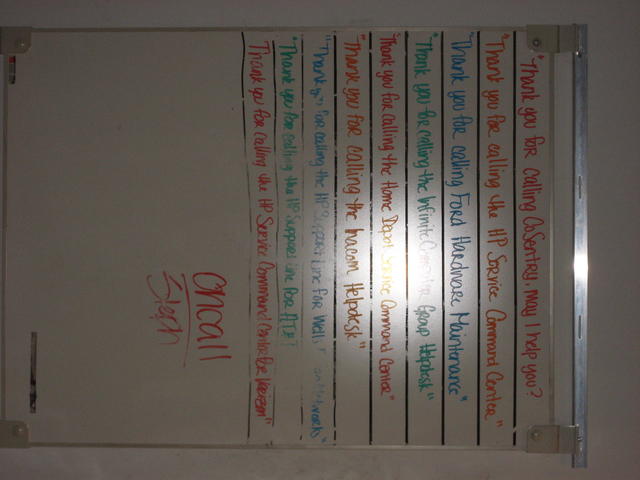 "Thank you for calling CoSentry, may I help you?
"Thank you for calling the HP Service Command Center"
"Thank you for calling Ford Hardware Maintenance"
"Thank you for calling the Infinite Computer Group Helpdesk"
Thank you for calling the Home Depot Service Command Center"
"Thank you for calling the Inacom Helpdesk"
"Thank you for calling the HP Support Line for Wells
"Thank you for calling the HP Support Line for
Thank you for calling the HP Service Command Center for Verizon"
oncall
Steph